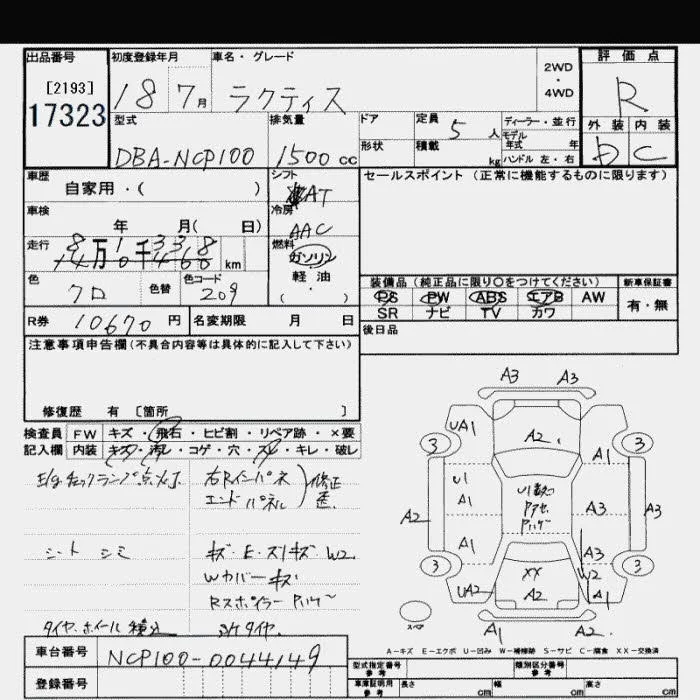 出品番号 初度登録年月 車名・グレード 評価点
[2193] 18 7月 ラクティス 2WD・4WD R
17323
型式 排気量 ドア 定員 5人 ディーラー・並行 外装 内装
DBA-NCP100 1500cc 形状 積載 kg モデル年式 年 ハンドル 左・右 D C
車歴 シフト セールスポイント(正常に機能するものに限ります)
自家用・( ) AT
車検 冷房
年 月( 日) AAC
走行 燃料
8万1千338 km ガソリン
軽油
・( )
色 色替 色コード
クロ 209
装備品(純正品に限り○をつけてください) 新車保証書
PS PW ABS エアB AW 有・無
SR ナビ TV カワ
R券 10670円 名変期限 月 日 後日品
注意事項申告欄(不具合内容等は具体的に記入して下さい)
修復歴 有 〔箇所 〕
検査員 FW キズ・飛石・ヒビ割・リペア跡・×要
記入欄 内装 キズ・汚レ・コゲ・穴・スレ・キレ・破レ
E/gチェックランプ点灯 右Rインパネ
エンドパネル 修正歪
シート シミ キズ・E・スリキズ W2
Wカバーキズ
Rスポイラー
タイヤ、ホイール積込 タイヤ、
A3 A3
UA1 A2
3 3
A1
U1 U1
A1
A2 A3 A3
A1 A3
W2
3 3
XX
UA2 A2 A1
スペア A1 A2
A-キズ E-エクボ U-凹み W-補修跡 S-サビ C-腐食 XX-交換済
車台番号 NCP100-0044149
登録番号
型式指定番号 参考 類別区分番号 参考
車庫証明用 参考 長さ cm 幅 cm 高さ cm